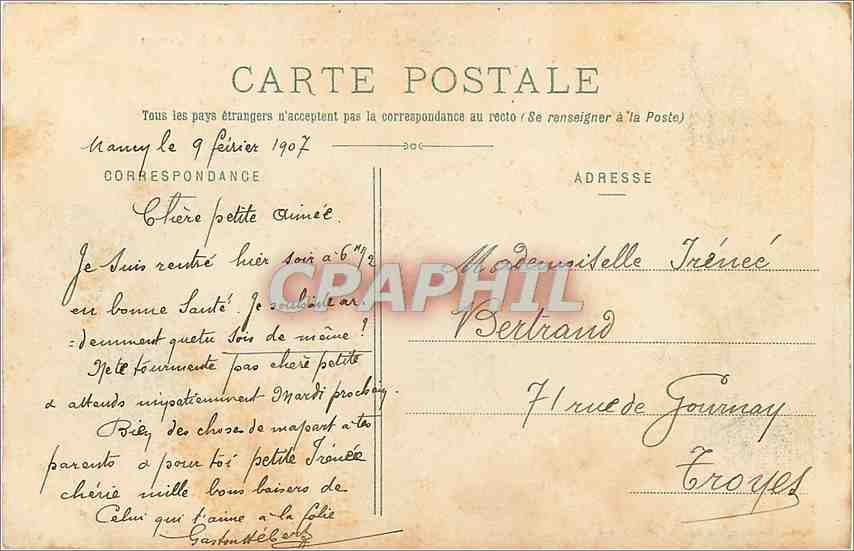 CARTE POSTALE
Tous les pays étrangers n'acceptent pas la correspondance au recto (Se renseigner à la Poste)
Nancy le 9 février 1907
CORRESPONDANCE
Chère petite aimée.
Je suis rentré hier soir à 6 H 1/2
en bonne santé. Je souhaite ar-
=demment que tu sois de même !
Ne te tourmente pas chère petite
& attends impatiemment Mardi prochain.
Bien des choses de ma part à tes
parents & pour toi petite Irénée
chérie mille bons baisers de
Celui qui t'aime à la folie
Gaston
ADRESSE
Mademoiselle Irénée
Bertrand
71 rue de Gournay
Troyes
CPAPHIL